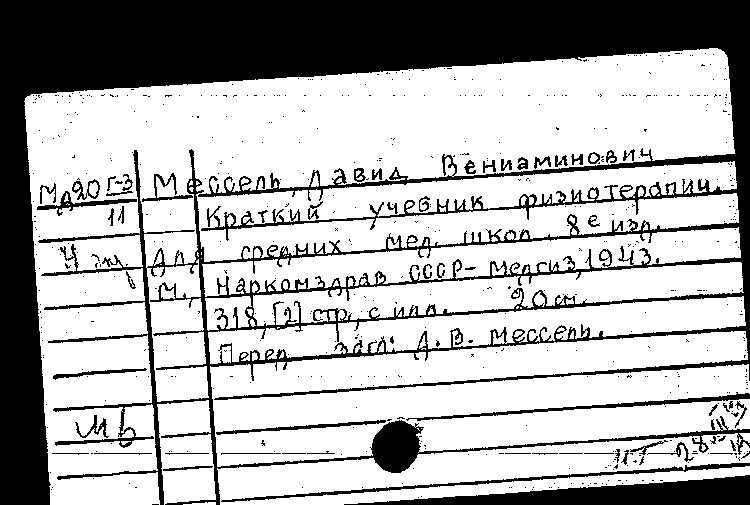 Мд20 Г-3 Мессель, Давид Вениаминович
11 Краткий учебник физиотерапии.
4 экз. Для средних мед. школ. 8е изд.
М., Наркомздрав СССР-Медгиз, 1943.
318, [2] стр., с илл. 20 см.
Перед загл: Д. В. Мессель.
28